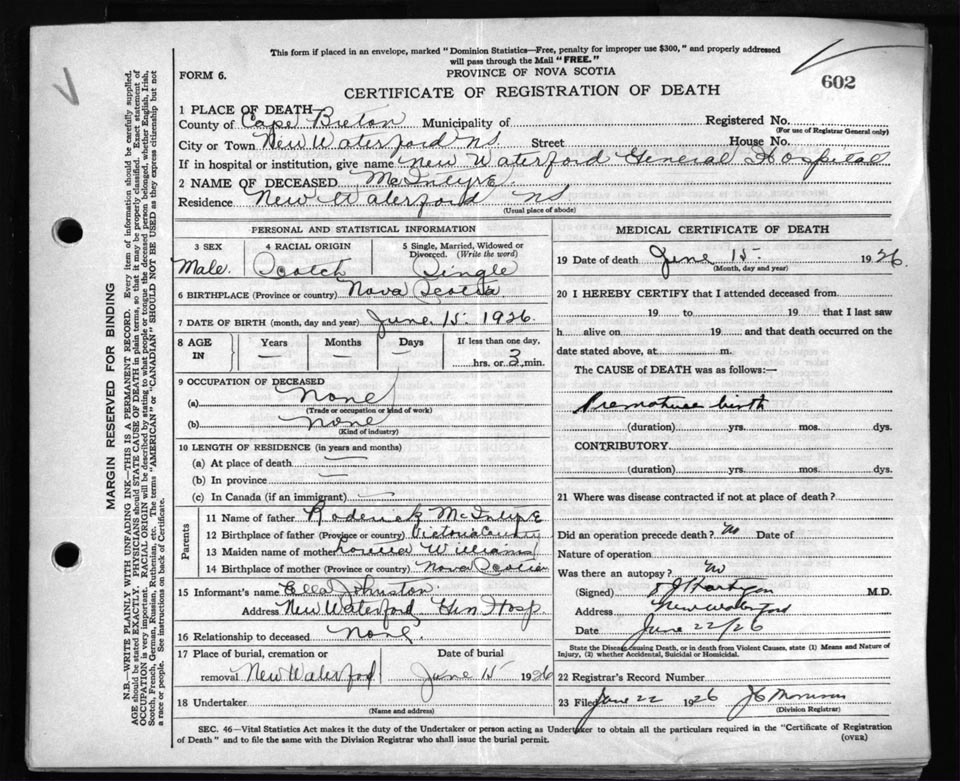 This form if placed in an envelope, marked "Dominion Statistics—Free, penalty for improper use $300," and properly addressed
will pass through the Mail "FREE."
FORM 6.
PROVINCE OF NOVA SCOTIA
602
CERTIFICATE OF REGISTRATION OF DEATH
1 PLACE OF DEATH
County of Cape Breton Municipality of Registered No.
(For use of Registrar General only)
City or Town New Waterford NS Street House No.
If in hospital or institution, give name New Waterford General Hospital
2 NAME OF DECEASED McIntyre
Residence New Waterford NS
(Usual place of abode)
PERSONAL AND STATISTICAL INFORMATION
3 SEX 4 RACIAL ORIGIN 5 Single, Married, Widowed or Divorced. (Write the word)
Male. Scotch Single
6 BIRTHPLACE (Province or country) Nova Scotia
7 DATE OF BIRTH (month, day and year) June 15 1926.
8 AGE IN Years Months Days If less than one day,
— — — hrs. or 3 min.
9 OCCUPATION OF DECEASED
(a) None
(Trade or occupation or kind of work)
(b) none
(Kind of industry)
10 LENGTH OF RESIDENCE (in years and months)
(a) At place of death —
(b) In province —
(c) In Canada (if an immigrant) —
Parents
11 Name of father Roderick McIntyre
12 Birthplace of father (Province or country) Victoria County
13 Maiden name of mother Williams
14 Birthplace of mother (Province or country) Nova Scotia
15 Informant's name Ella Johnston
Address New Waterford Gen Hosp
16 Relationship to deceased None.
17 Place of burial, cremation or removal Date of burial
New Waterford June 15 1926
18 Undertaker
(Name and address)
MEDICAL CERTIFICATE OF DEATH
19 Date of death June 15 1926.
(Month, day and year)
20 I HEREBY CERTIFY that I attended deceased from
19 to 19 that I last saw
h alive on 19 and that death occurred on
date stated above, at m.
The CAUSE of DEATH was as follows:—
Premature birth
(duration) yrs. mos. dys.
CONTRIBUTORY.
(duration) yrs. mos. dys.
21 Where was disease contracted if not at place of death?
Did an operation precede death? No Date of
Nature of operation
Was there an autopsy? No
(Signed) M.D.
Address New Waterford
Date June 22/26
State the Disease causing Death, or in death from Violent Causes, state (1) Means and Nature of
Injury, (2) whether Accidental, Suicidal or Homicidal.
22 Registrar's Record Number
23 Filed June 22 1926 J C Morrison
(Division Registrar)
SEC. 46—Vital Statistics Act makes it the duty of the Undertaker or person acting as Undertaker to obtain all the particulars required in the "Certificate of Registration
of Death" and to file the same with the Division Registrar who shall issue the burial permit.
(OVER)
MARGIN RESERVED FOR BINDING
N.B.—WRITE PLAINLY WITH UNFADING INK—THIS IS A PERMANENT RECORD. Every item of information should be carefully supplied.
AGE should be stated EXACTLY. PHYSICIANS should STATE CAUSE OF DEATH in plain terms, so that it may be properly classified. Exact statement of
OCCUPATION is very important. RACIAL ORIGIN will be described by stating to what people or tongue the deceased person belonged, whether English, Irish,
Scotch, French, German, Russian, Ruthenian, etc. The terms "AMERICAN" or "CANADIAN" SHOULD NOT BE USED as they express citizenship but not
a race or people. See instructions on back of Certificate.